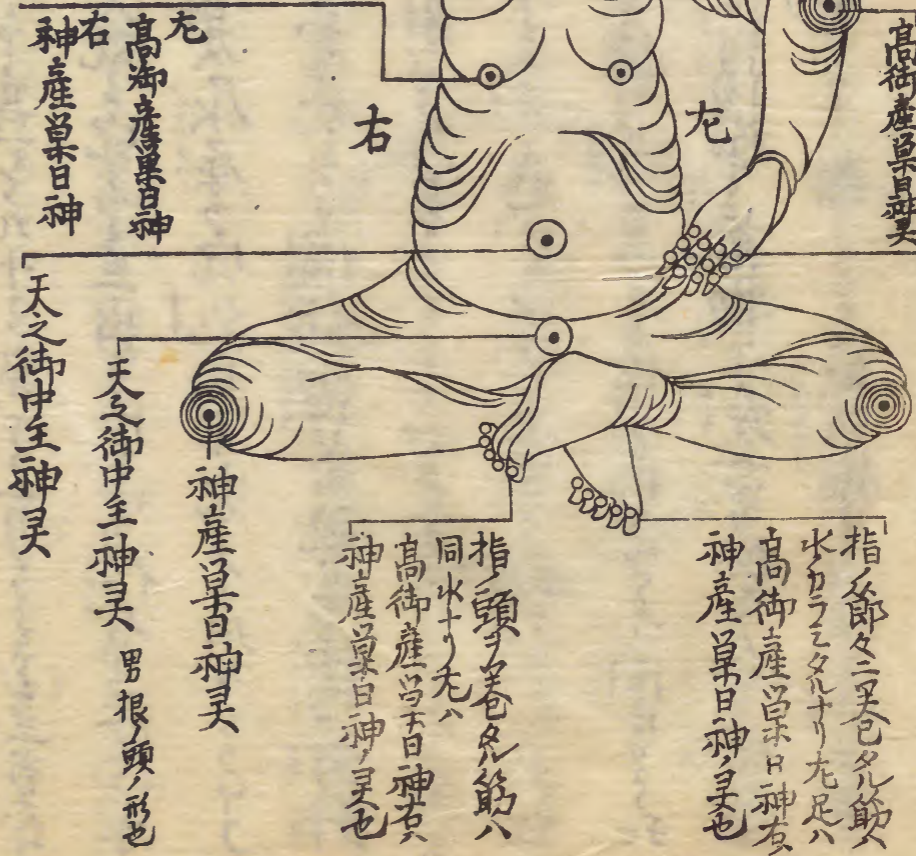 高御産巣日神灵
左
右
左
高御産巣日神
右
神産巣日神
指ノ節々ニ巻タル筋ハ
水カラミタルナリ左足ハ
高御産巣日神右ハ
神産巣日神ノ灵也
指ノ頭ヲ巻タル筋ハ
同水ナリ左ハ
高御産巣日神右ハ
神産巣日神ノ灵也
神産巣日神灵
天之御中主神灵 男根ノ頭ノ形也
天之御中主神灵